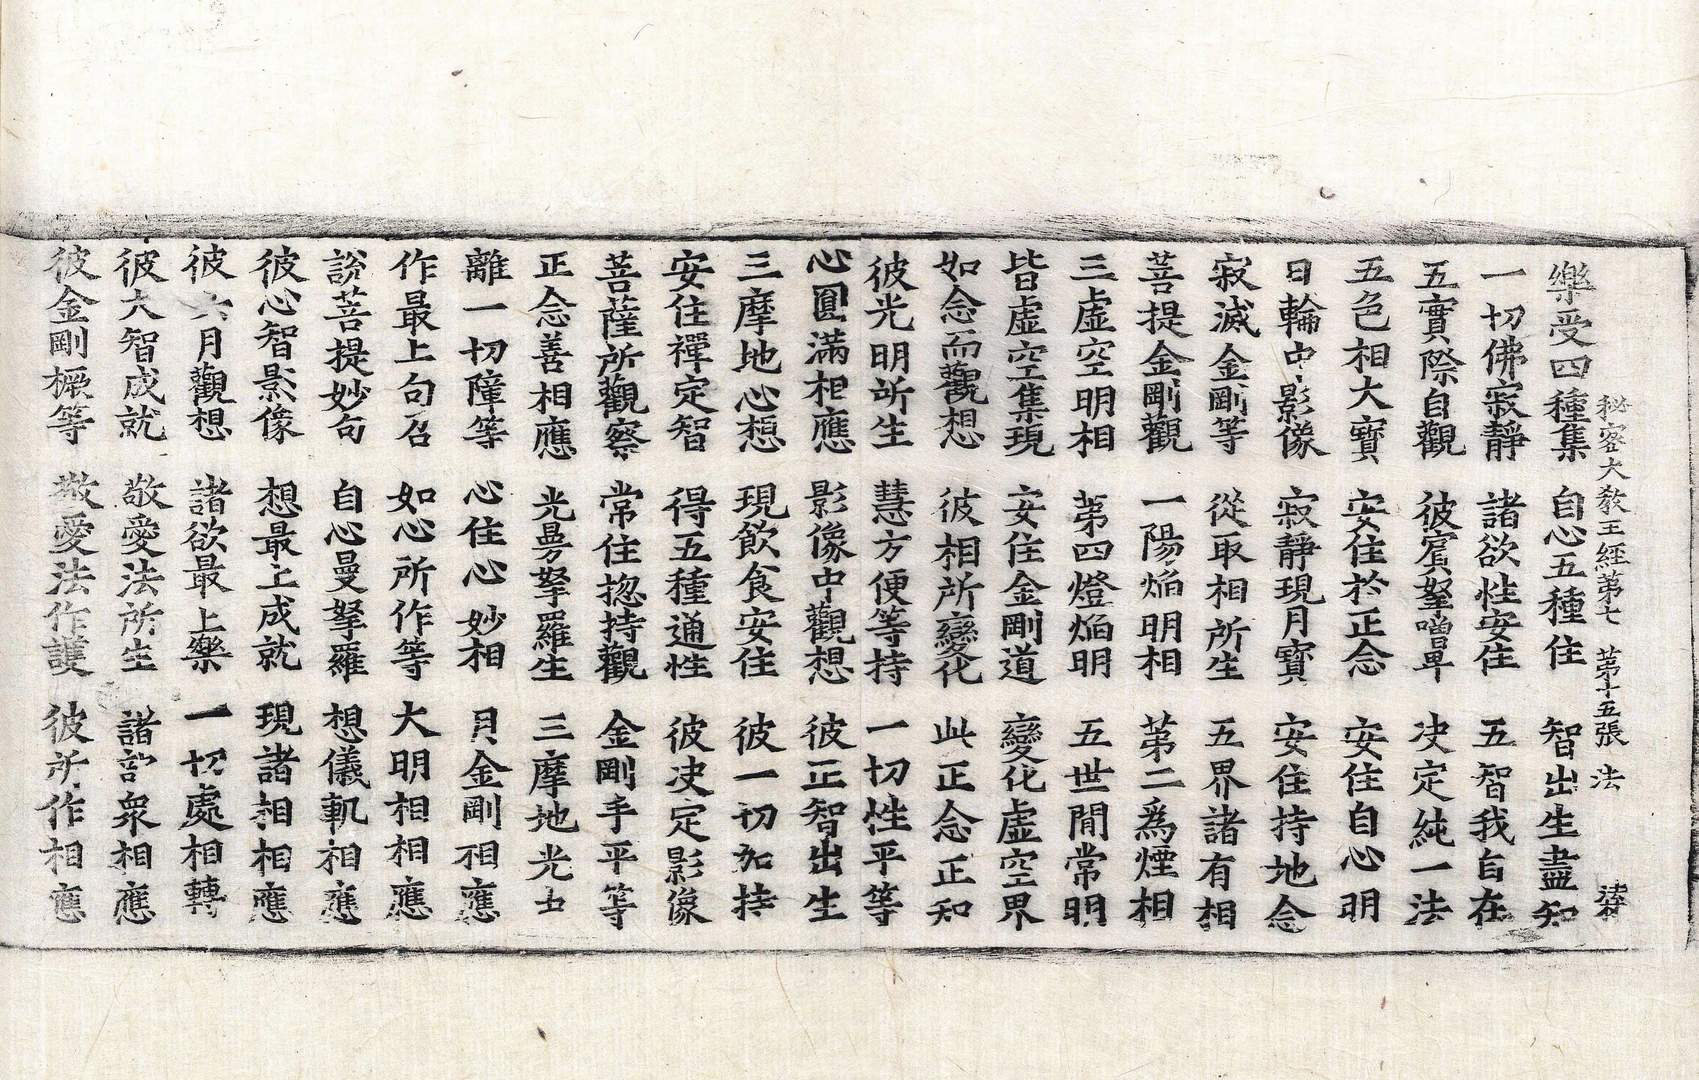 秘密大教王經第七　第十五張　法
樂受四種集　自心五種住　智出生盡知
一切佛寂靜　諸欲性安住　五智我自在
五實際自觀　彼賓拏噌畢　决定純一法
五色相大寶　安住於正念　安住自心明
日輪中影像　寂靜現月寶　安住持地念
寂滅金剛等　從取相所生　五界諸有相
菩提金剛觀　一陽焔明相　苐二為煙相
三虛空明相　苐四燈焔明　五世間常明
皆虛空集現　安住金剛道　變化虛空界
如念而觀想　彼相所變化　此正念正知
彼光明所生　慧方便等持　一切性平等
心圓滿相應　影像中觀想　彼正智出生
三摩地心想　現飲食安住　彼一切加持
安住禪定智　得五種通性　彼决定影像
菩薩所觀察　常住揔持觀　金剛手平等
正念善相應　光曼拏羅生　三摩地光
離一切障等　心住心妙相　月金剛相應
作最上句召　如心所作等　大明相相應
說菩提妙句　自心曼拏羅　想儀軌相應
彼心智影像　想最上成就　現諸相相應
彼月觀想　諸欲最上樂　一切處相轉
彼大智成就　敬愛法所生　諸眾相應
彼金剛橛等　敬愛法作護　彼所作相應